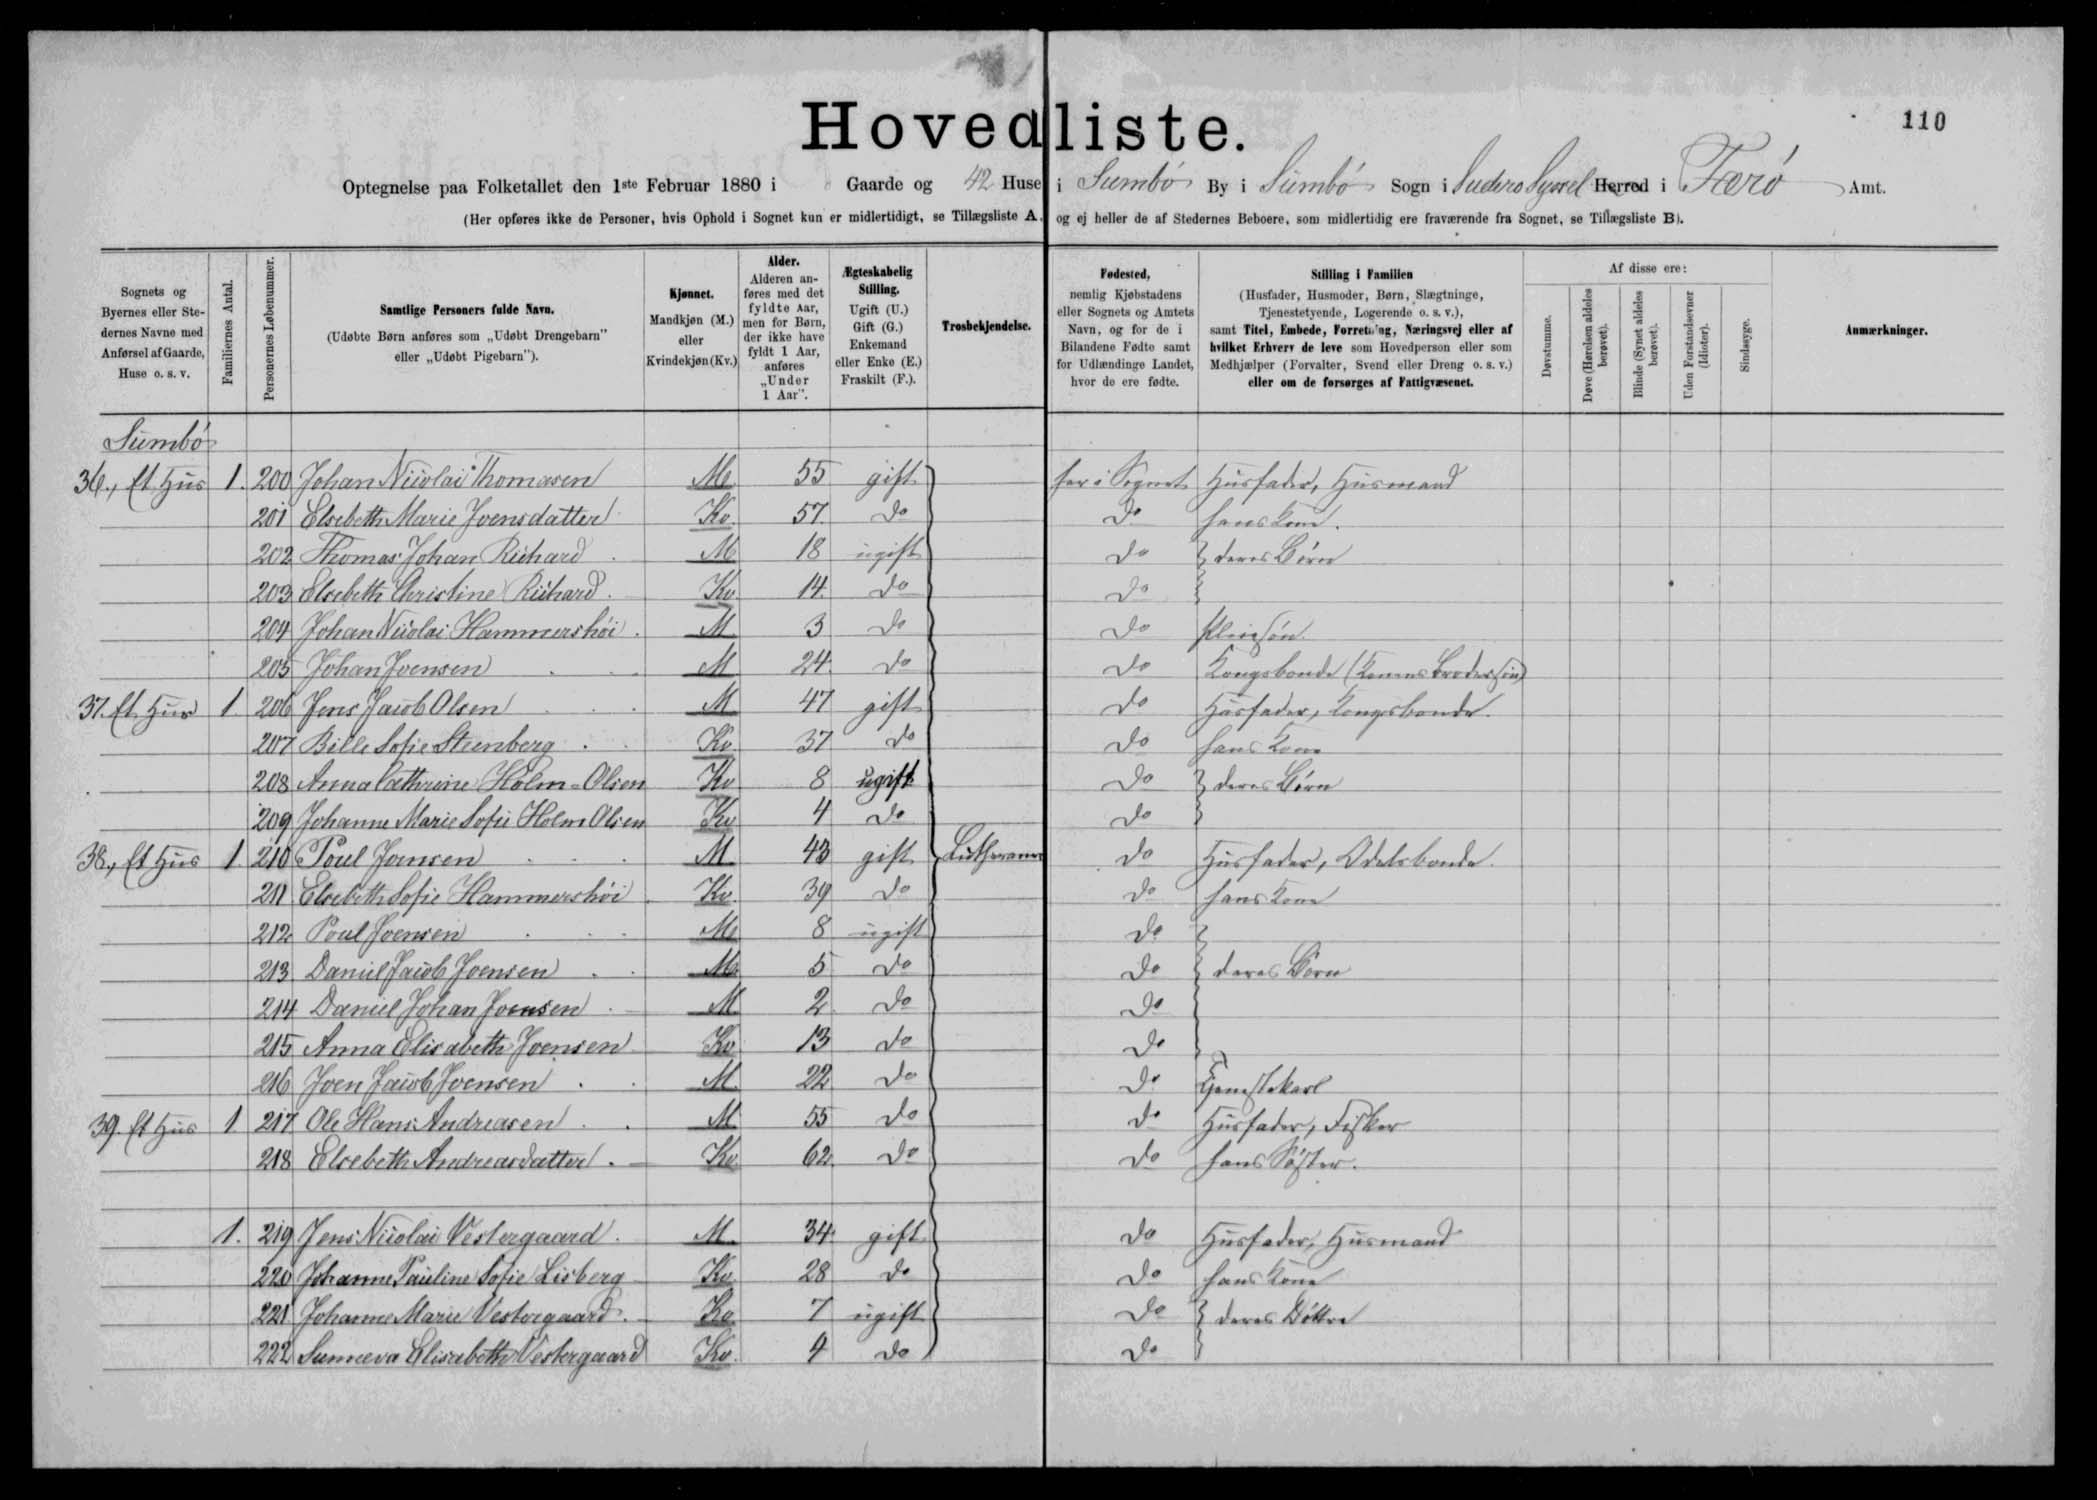 110
Hovedliste.
Optegnelse paa Folketallet den 1ste Februar 1880 i Gaarde og 42 Huse i Sumbø By i Sumbø Sogn i Suderø Syssel Herred i Færø Amt.
(Her opføres ikke de Personer, hvis Ophold i Sognet kun er midlertidigt, se Tillægsliste A, og ej heller de af Stedernes Beboere, som midlertidig ere fraværende fra Sognet, se Tillægsliste B).
Sognets og Byernes eller Stedernes Navne med Anførsel af Gaarde, Huse o. s. v.
Familiernes Antal.
Personernes Løbenummer.
Samtlige Personers fulde Navn.
(Udøbte Børn anføres som „Udøbt Drengebarn” eller „Udøbt Pigebarn”).
Kjønnet.
Mandkjøn (M.) eller Kvindekjøn (Kv.)
Alder.
Alderen anføres med det fyldte Aar, men for Børn, der ikke have fyldt 1 Aar, anføres „Under 1 Aar”.
Ægteskabelig Stilling.
Ugift (U.) Gift (G.) Enkemand eller Enke (E.) Fraskilt (F.).
Trosbekjendelse.
Fødested,
nemlig Kjøbstadens eller Sognets og Amtets Navn, og for de i Bilandene Fødte samt for Udlændinge Landet, hvor de ere fødte.
Stilling i Familien
(Husfader, Husmoder, Børn, Slægtninge, Tjenestetyende, Logerende o. s. v.),
samt Titel, Embede, Forretning, Næringsvej eller af hvilket Erhverv de leve som Hovedperson eller som Medhjælper (Forvalter, Svend eller Dreng o. s. v.) eller om de forsørges af Fattigvæsenet.
Af disse ere:
Døvstumme.
Døve (Hørelsen aldeles berøvet).
Blinde (Synet aldeles berøvet).
Uden Forstandsevner (Idioter).
Sindssyge.
Anmærkninger.
Sumbø
36., Et Hus 1. 200 Johan Nicolai Thomasen M 55 gift her i Sognet Husfader, Husmand
201 Elsebeth Marie Joensdatter Kv. 57. do do hans Kone.
202 Thomas Johan Richard M 18 ugift do deres Børn
203 Elsebeth Christine Richard. Kv 14. do do
204 Johan Nicolai Hammershøi. M 3 do do Pleiesøn.
205 Johan Joensen M 24. do do Kongsbonde (Konens Brodersøn)
37. Et Hus 1. 206 Jens Jacob Olsen M 47 gift do Husfader, Kongsbonde.
207 Bille Sofie Steenberg Kv. 37 do do hans Kone
208 Anna Cathrine Holm-Olsen Kv 8 ugift do deres Børn
209 Johanne Marie Sofie Holm Olsen Kv 4 do do
38., Et Hus 1. 210 Poul Joensen M 43 gift Lutheraner do Husfader, Odelsbonde.
211 Elsebeth Sofie Hammershøi. Kv. 39 do do hans Kone
212 Poul Joensen M 8 ugift do
213 Daniel Jacob Joensen M 5 do do deres Børn
214 Daniel Johan Joensen M 2. do do
215 Anna Elisabeth Joensen Kv 13 do do
216 Joen Jacob Joensen M. 22 do do Tjenestekarl
39. Et Hus 1 217 Ole Hans Andreasen M 55 do do Husfader, Fisker
218 Elsebeth Andreasdatter. Kv 62. do do hans Søster.
1. 219 Jens Nicolai Vestergaard. M. 34 gift do Husfader, Husmand
220 Johanne Pauline Sofie Lisberg Kv. 28 do do hans Kone
221 Johanne Marie Vestergaard. Kv 7 ugift do deres Døttre
222 Sunneva Elisabeth Vestergaard Kv. 4 do do